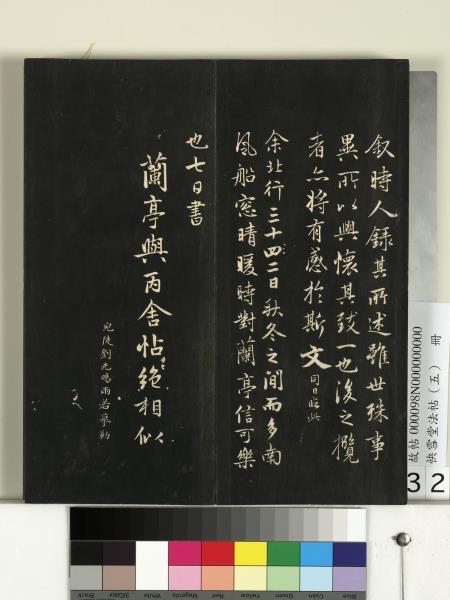 叙時人錄其所述雖世殊事
異所以興懷其致一也後之攬
者亦將有感於斯文 同日臨此
余北行三十二日秋冬之間而多南
風船窓晴暖時對蘭亭信可樂
也七日書
蘭亭與丙舍帖絶相似
宛陵劉光暘雨若摹勒
故帖 000098N000000000
快雪堂法帖(五) 冊
32
Black 3/Color White Magenta Red Yellow Green Cyan Blue